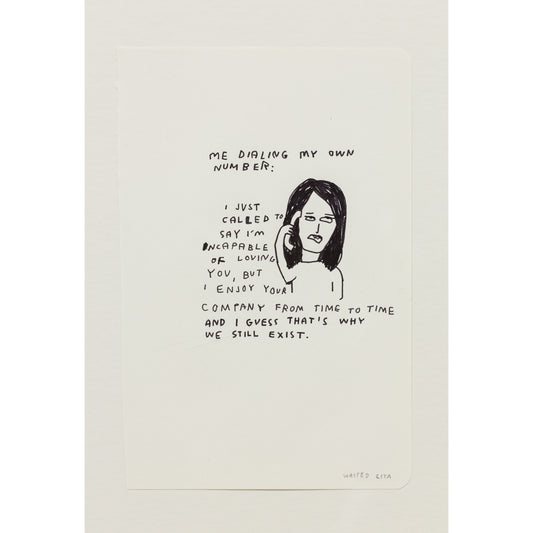 ME DIALING MY OWN
NUMBER:
I JUST
CALLED TO
SAY I'M
INCAPABLE
OF LOVING
YOU, BUT
I ENJOY YOUR
COMPANY FROM TIME TO TIME
AND I GUESS THAT'S WHY
WE STILL EXIST.
WASTED RITA